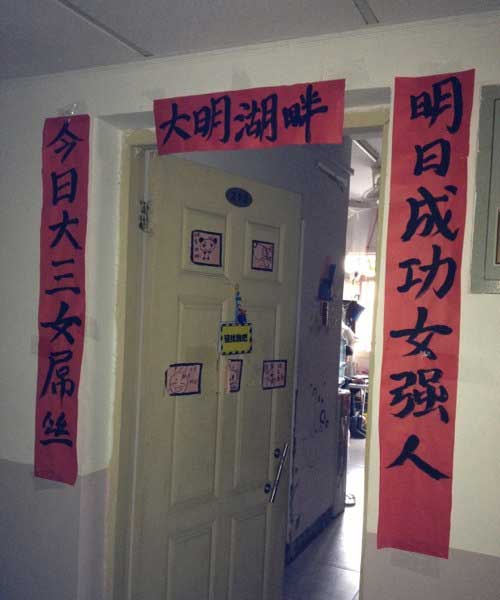 大明湖畔
今日大三女屌丝
明日成功女强人